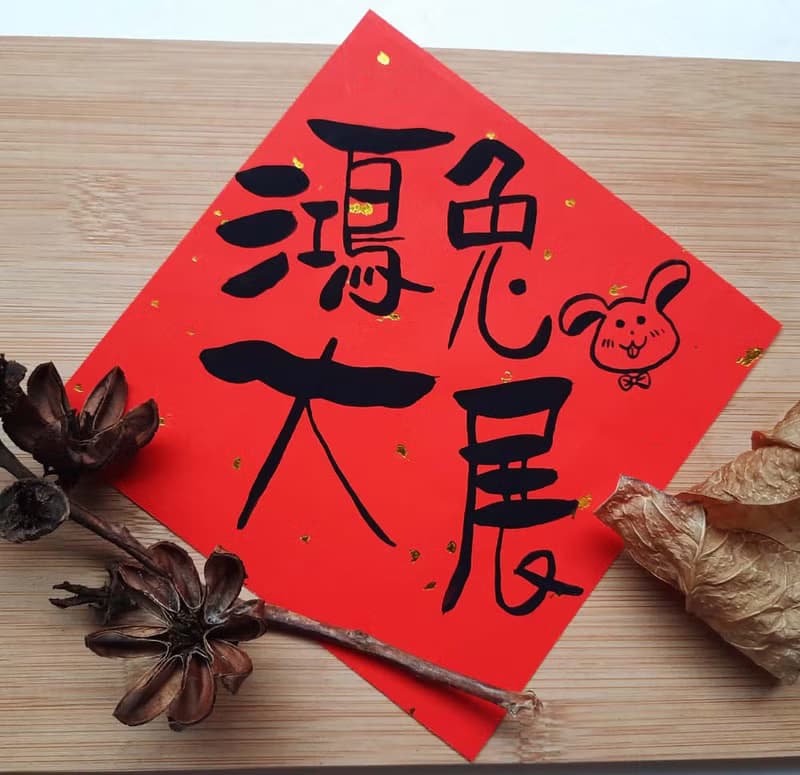 鴻兔
大展